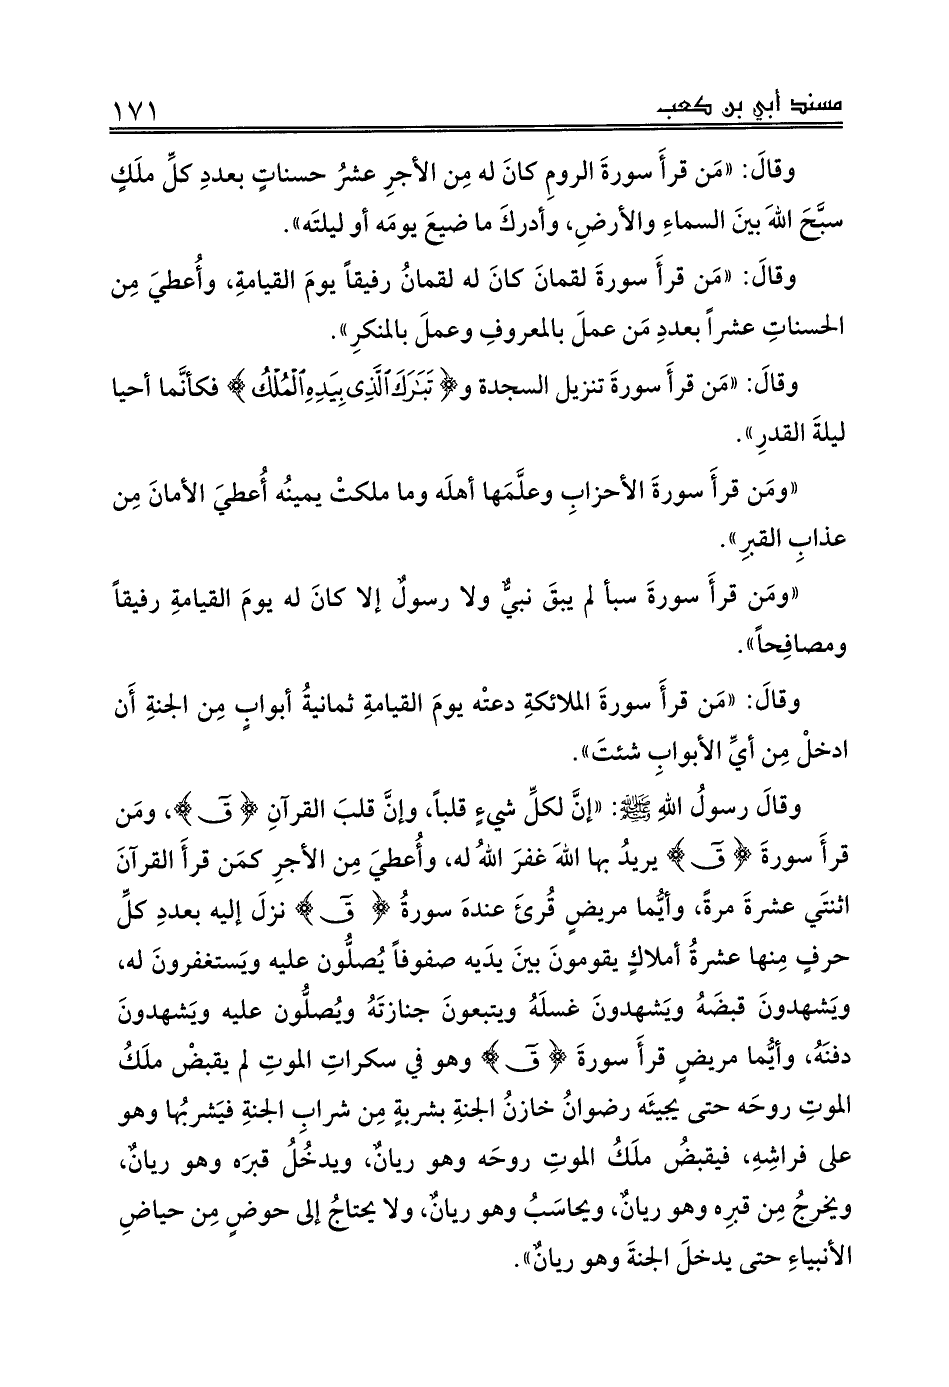 مسند أبي بن كعب ١٧١
وقالَ: «مَن قرأَ سورةَ الرومِ كانَ له مِن الأجرِ عشرُ حسناتٍ بعددِ كلِّ ملَكٍ
سبَّحَ اللهَ بينَ السماءِ والأرضِ، وأدركَ ما ضيعَ يومَه أو ليلتَه».
وقالَ: «مَن قرأَ سورةَ لقمانَ كانَ له لقمانُ رفيقاً يومَ القيامةِ، وأُعطيَ مِن
الحسناتِ عشراً بعددِ مَن عملَ بالمعروفِ وعملَ بالمنكرِ».
وقالَ: «مَن قرأَ سورةَ تنزيل السجدة و﴿ تَبَٰرَكَ ٱلَّذِى بِيَدِهِ ٱلْمُلْكُ ﴾ فكأنَّما أحيا
ليلةَ القدرِ».
«ومَن قرأَ سورةَ الأحزابِ وعلَّمَها أهلَه وما ملكتْ يمينُه أُعطيَ الأمانَ مِن
عذابِ القبرِ».
«ومَن قرأَ سورةَ سبأ لم يبقَ نبيٌّ ولا رسولٌ إلا كانَ له يومَ القيامةِ رفيقاً
ومصافِحاً».
وقالَ: «مَن قرأَ سورةَ الملائكةِ دعتْه يومَ القيامةِ ثمانيةُ أبوابٍ مِن الجنةِ أَن
ادخلْ مِن أيِّ الأبوابِ شئتَ».
وقالَ رسولُ اللهِ ﷺ: «إنَّ لكلِّ شيءٍ قلباً، وإنَّ قلبَ القرآنِ ﴿ قٓ ﴾، ومَن
قرأَ سورةَ ﴿ قٓ ﴾ يريدُ بها اللهَ غفرَ اللهُ له، وأُعطيَ مِن الأجرِ كمَن قرأَ القرآنَ
اثنتَي عشرةَ مرةً، وأيُّما مريضٍ قُرئَ عندهَ سورةُ ﴿ قٓ ﴾ نزلَ إليه بعددِ كلِّ
حرفٍ مِنها عشرةُ أملاكٍ يقومونَ بينَ يدَيه صفوفاً يُصلُّون عليه ويَستغفرونَ له،
ويَشهدونَ قبضَهُ ويَشهدونَ غسلَهُ ويتبعونَ جنازتَهُ ويُصلُّون عليه ويَشهدونَ
دفنَهُ، وأيُّما مريضٍ قرأَ سورةَ ﴿ قٓ ﴾ وهو في سكراتِ الموتِ لم يقبضْ ملَكُ
الموتِ روحَه حتى يجيئَه رضوانُ خازنُ الجنةِ بشربةٍ مِن شرابِ الجنةِ فيَشربُها وهو
على فراشِهِ، فيقبضُ ملَكُ الموتِ روحَه وهو ريانٌ، ويدخُلُ قبرَه وهو ريانٌ،
ويخرجُ مِن قبرِه وهو ريانٌ، ويحاسَبُ وهو ريانٌ، ولا يحتاجُ إلى حوضٍ مِن حياضِ
الأنبياءِ حتى يدخلَ الجنةَ وهو ريانٌ».